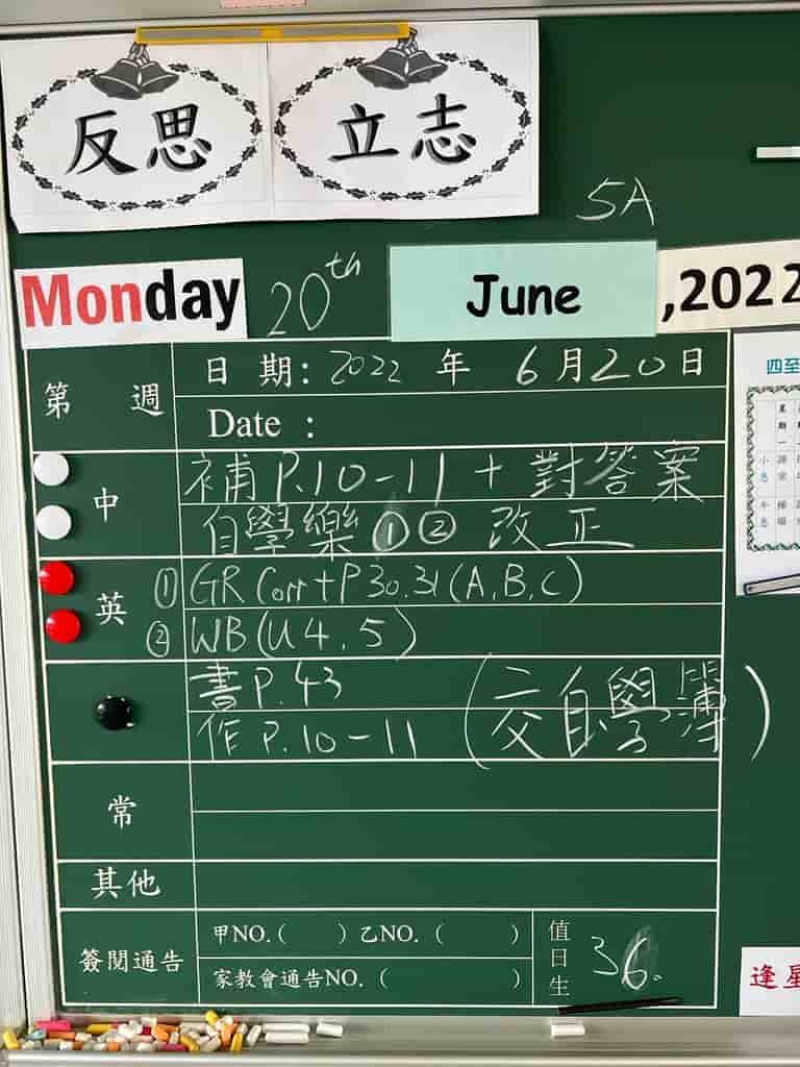 反思 立志
5A
Monday 20th June ,2022
第 週
日 期: 2022 年 6月20日
Date :
中
補P.10-11 + 對答案
自學樂①② 改正
英
① GR Corr+P30.31(A,B,C)
② WB(U4.5)
書P.43
作P.10-11
(交自學簿)
常
其他
簽閱通告
甲NO.( ) 乙NO.( )
家教會通告NO.( )
值日生 36.
四至
逢星